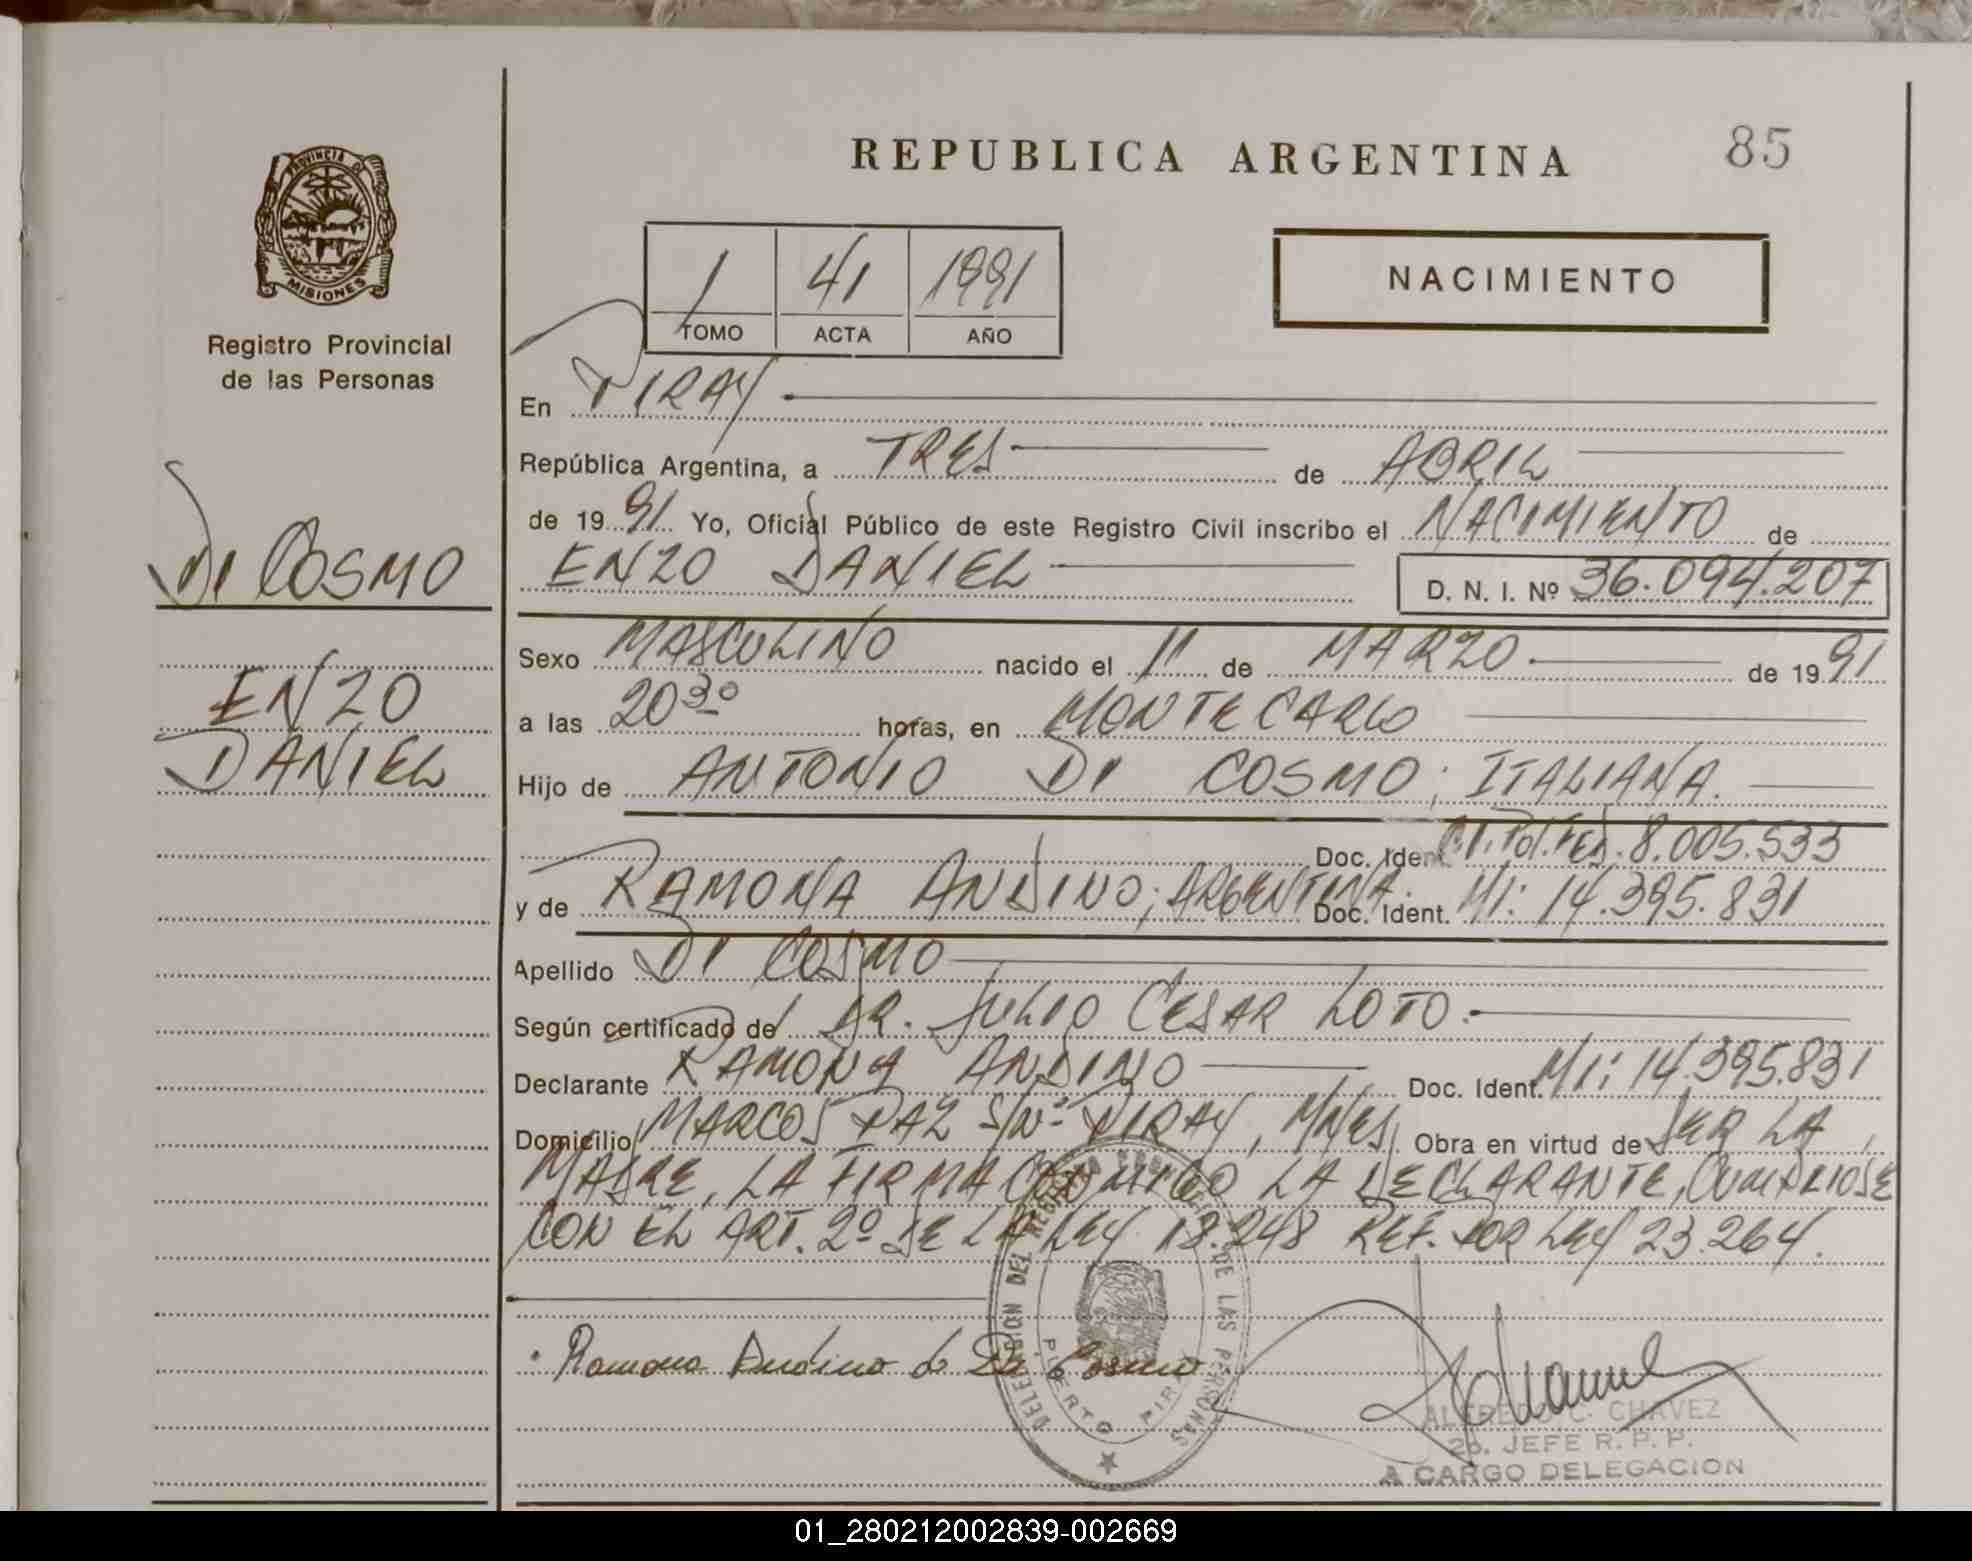 REPUBLICA ARGENTINA
85
PROVINCIA DE
MISIONES
Registro Provincial
de las Personas
1 41 1991
TOMO ACTA AÑO
NACIMIENTO
En PIRAY
República Argentina, a TRES de ABRIL
de 1991 Yo, Oficial Público de este Registro Civil inscribo el NACIMIENTO de
ENZO DANIEL D. N. I. Nº 36.094.207
DI COSMO
ENZO
DANIEL
Sexo MASCULINO nacido el 11 de MARZO de 1991
a las 20 30 horas, en MONTECARLO
Hijo de ANTONIO DI COSMO; ITALIANA.
Doc. Ident. C.I. Pol. Fed. 8.005.533
y de RAMONA ANDINO; ARGENTINA. Doc. Ident. MI: 14.395.831
Apellido DI COSMO
Según certificado del DR. JULIO CESAR LOTO.
Declarante RAMONA ANDINO Doc. Ident. MI: 14.395.831
Domicilio MARCOS PAZ S/Nº PIRAY, MNES. Obra en virtud de SER LA
MADRE, LA FIRMA CONMIGO LA DECLARANTE, CUMPLIOSE
CON EL ART. 2º DE LA LEY 18.248 REF. POR LEY 23.264.
Ramona Andino de Di Cosmo
DELEGACION DEL REGISTRO PROVINCIAL DE LAS PERSONAS
PUERTO PIRAY
ALFREDO C. CHAVEZ
2o. JEFE R. P. P.
A CARGO DELEGACION
01_280212002839-002669